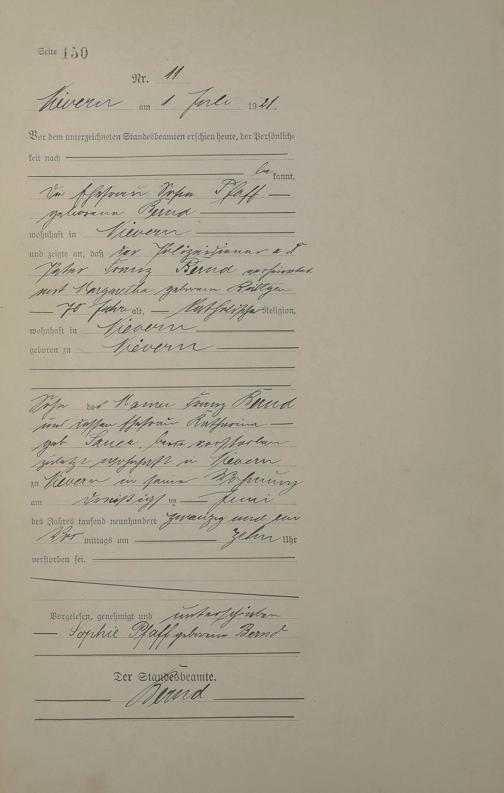 Seite 150
Nr. 11
Nievern am 1 Juli 1921.
Vor dem unterzeichneten Standesbeamten erschien heute, der Persönlich-
keit nach
be kannt,
die Ehefrau Sofia Pfaff
geborene Bernd
wohnhaft in Nievern
und zeigte an, daß der Polizeidiener a. D
Peter Franz Bernd verheiratet
mit Margaretha geborene
70 Jahr alt, Katholische Religion,
wohnhaft in Nievern
geboren zu Nievern
Sohn des Franz Bernd
und dessen Ehefrau Katharina
geb. beide verstorben
zuletzt wohnhaft in Nievern
zu Nievern in seiner Wohnung
am dreißigst en Juni
des Jahres tausend neunhundert zwanzig und ein
Vor mittags um zehn Uhr
verstorben sei.
Vorgelesen, genehmigt und unterschrieben
Sophie Pfaff geborene Bernd
Der Standesbeamte.
Bernd